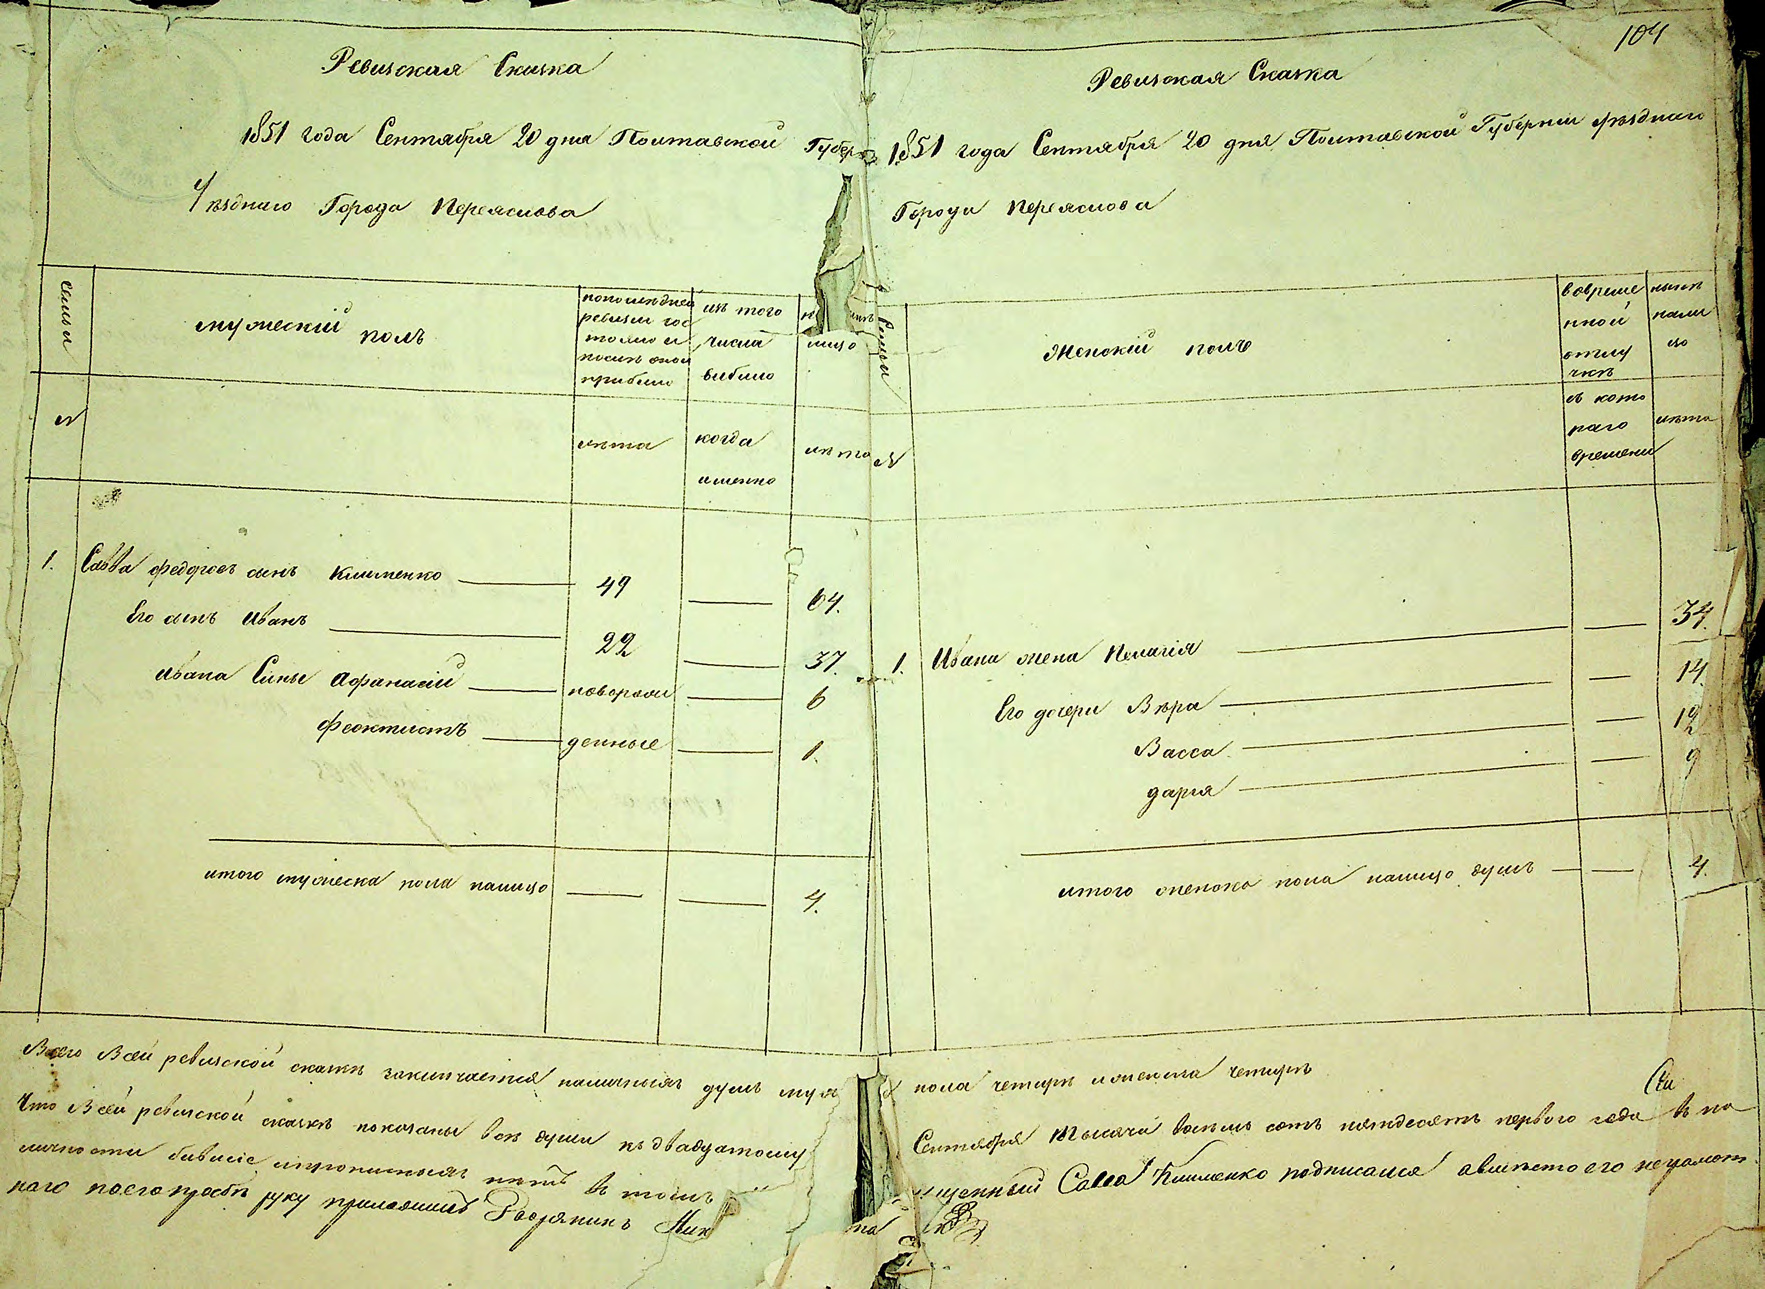 104
Ревизская Сказка
1851 года Сентября 20 дня Полтавской Губер
Уѣзднаго Города Переяслова
семьи
мужескій полъ
по последней
ревизіи со
стояло и
послѣ оной
прибыло
изъ того
числа
выбыло
лицо
№
лѣта
когда
именно
лѣта
1. Савва Федоровъ сынъ Клименко 49 64.
Его сынъ Иванъ 22 37.
Ивана Сыны Афанасій новорож 6
Феоктистъ денные 1.
итого мужеска пола налицо 4.
Ревизская Сказка
1851 года Сентября 20 дня Полтавской Губерніи уѣзднаго
Города Переяслова
Семьи
Женскій полъ
во време
нной
отлу
чкѣ
нынѣ
нали
цо
№
съ кото
раго
времени
лѣта
1. Ивана жена Пелагія 34.
Его дочери Вѣра 14.
Васса 12
Дарья 9
итого женска пола налицо душъ 4.
Всего Всей ревизской сказкѣ заключается наличныхъ душъ муж пола четыре и женска четыре
Что Всей ревизской сказкѣ показаны всѣ души къ двадцатому Сентября тысяча восемь сотъ пятдесятъ первого года въ на
личности бывшіе и прописныхъ нѣтъ въ томъ Савва Клименко подписался а вместо его неграмот
наго по его прозбѣ руку приложилъ Дворянинъ